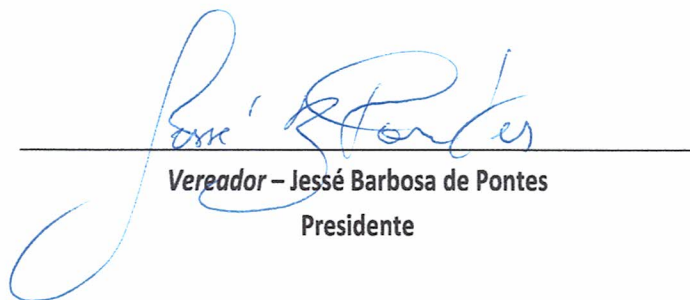 Jessé B Pontes
Vereador – Jessé Barbosa de Pontes
Presidente